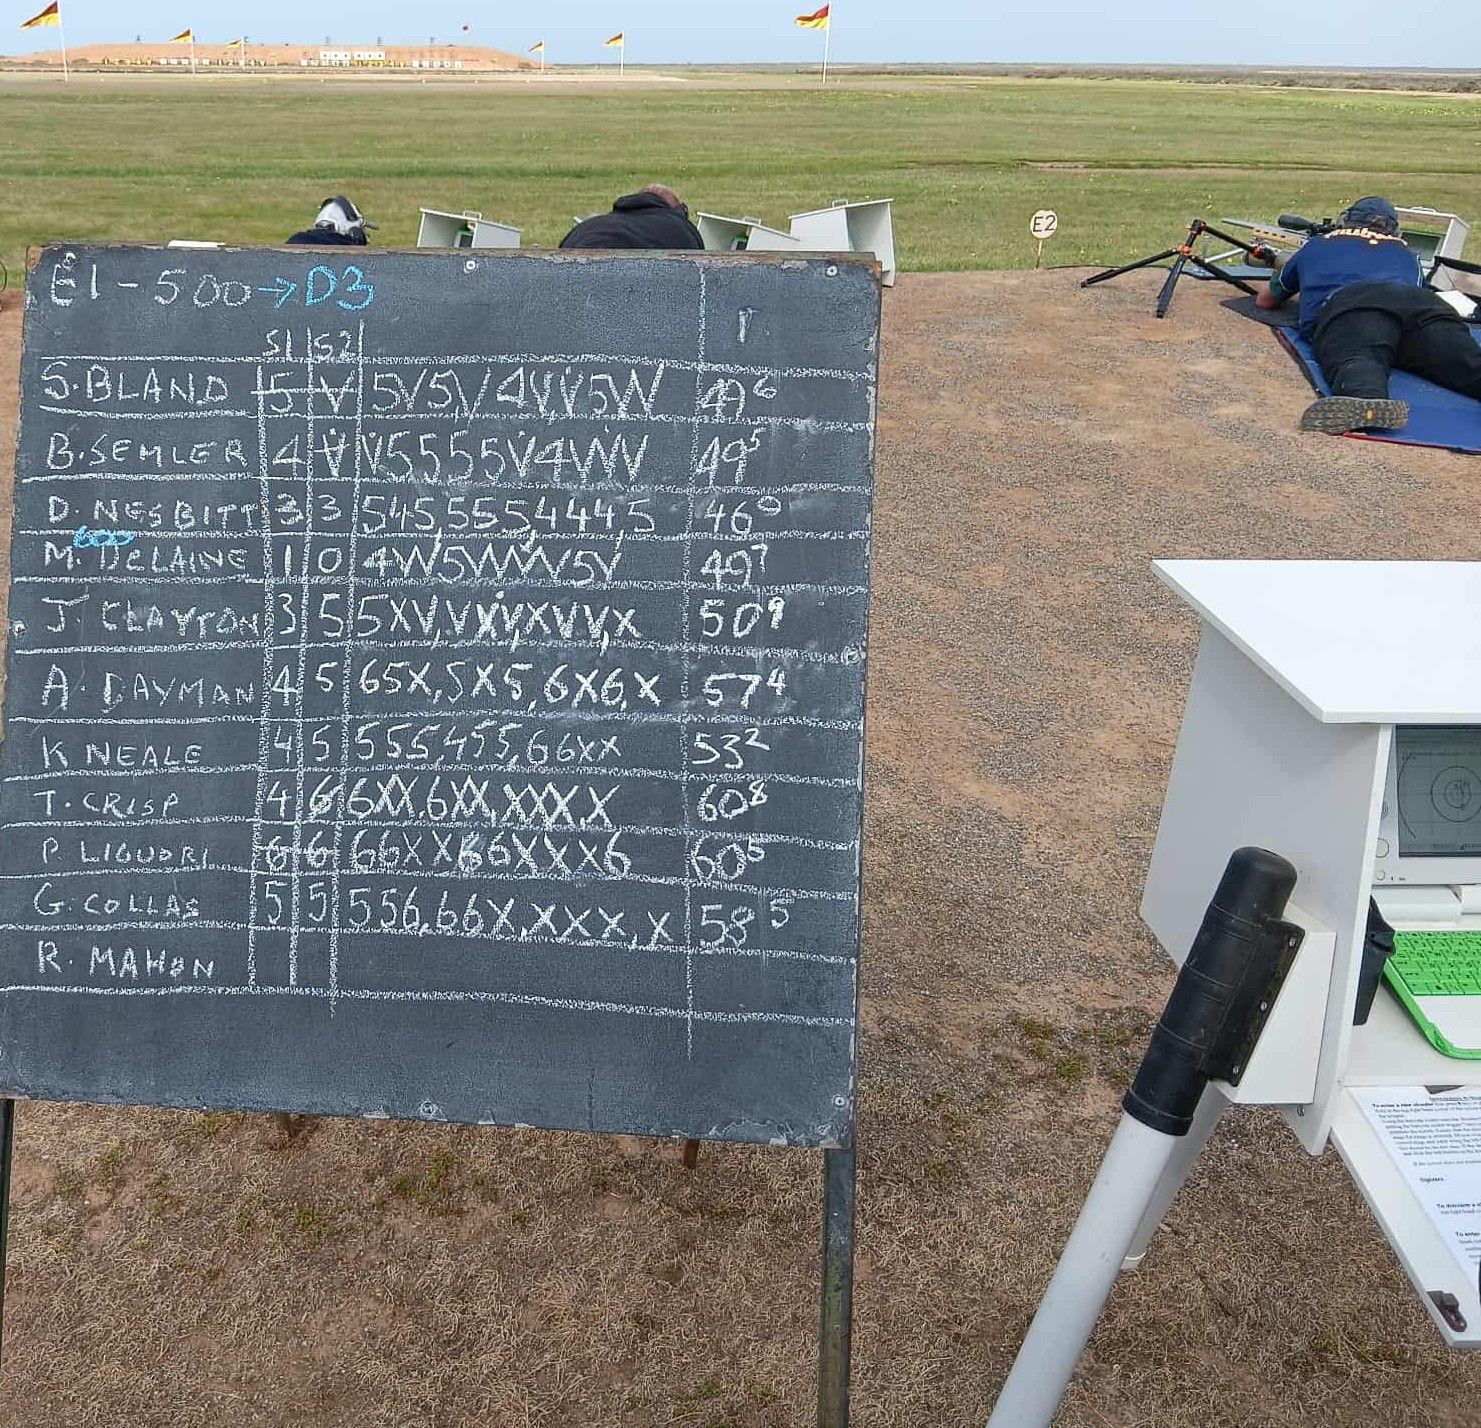 E1 - 500 → D3
S1 S2
S. BLAND 5 V 5V5V4VV5VV 49⁶
B. SEMLER 4 V V5555V4VVV 49⁵
D. NESBITT 3 3 545,555,444,5 46⁰
600
M. DeLAINE 1 0 49⁷
J. CLAYTON 3 5 5XV,VXV,XVV,X 50⁹
A. DAYMAN 4 5 65X,5X5,6X6,X 57⁴
K NEALE 4 5 555,455,66XX 53²
T. CRISP 4 6 6XX,6XX,XXX,X 60⁸
P. LIGUORI 6 6 66XX66XXX6 60⁵
G. COLLAS 5 5 556,66X,XXX,X 58⁵
R. MAHON
E2